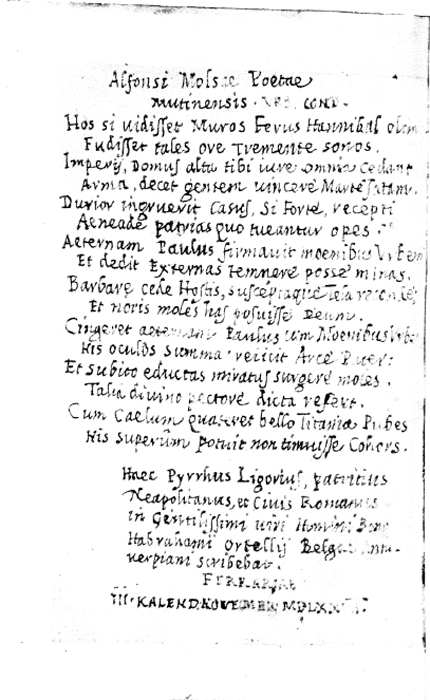 Alfonsi Molsae Poetae
Mutinensis. VRB. COND.
Hos si uidisset Muros Ferus Hannibal olim
Fudisset tales ore Tremente sonos.
Imperij, Domus alta tibi iure omnia cedant
Arma, decet gentem uincere Marte satam.
Durior ingruerit Casus, Si Forte, recepti
Aeneadae patrias quo tueantur opes
Aeternam Paulus firmauit moenibus Vrbem
Et dedit Externas temnere posse minas.
Barbare cede Hostis, susceptaque Tela
Et noris moles has posuisse Deum.
Cingeret aeternam Paulus cum Moenibus Vrbem
His oculos summa reiicit Arce Pater:
Et subito eductas miratus surgere moles.
Talia diuino pectore dicta refert.
Cum Caelum quateret bello Titania Pubes
His superûm potuit non timuisse Cohors.
Haec Pyrrhus Ligorius, patritius
Neapolitanus, et Ciuis Romanus
in Gentilissimi uiri
Habrahami Ortellij Belgae Antu-
uerpiani scribebat.
FERRARIAE
III. KALEND. NOVEMBR MDLXX